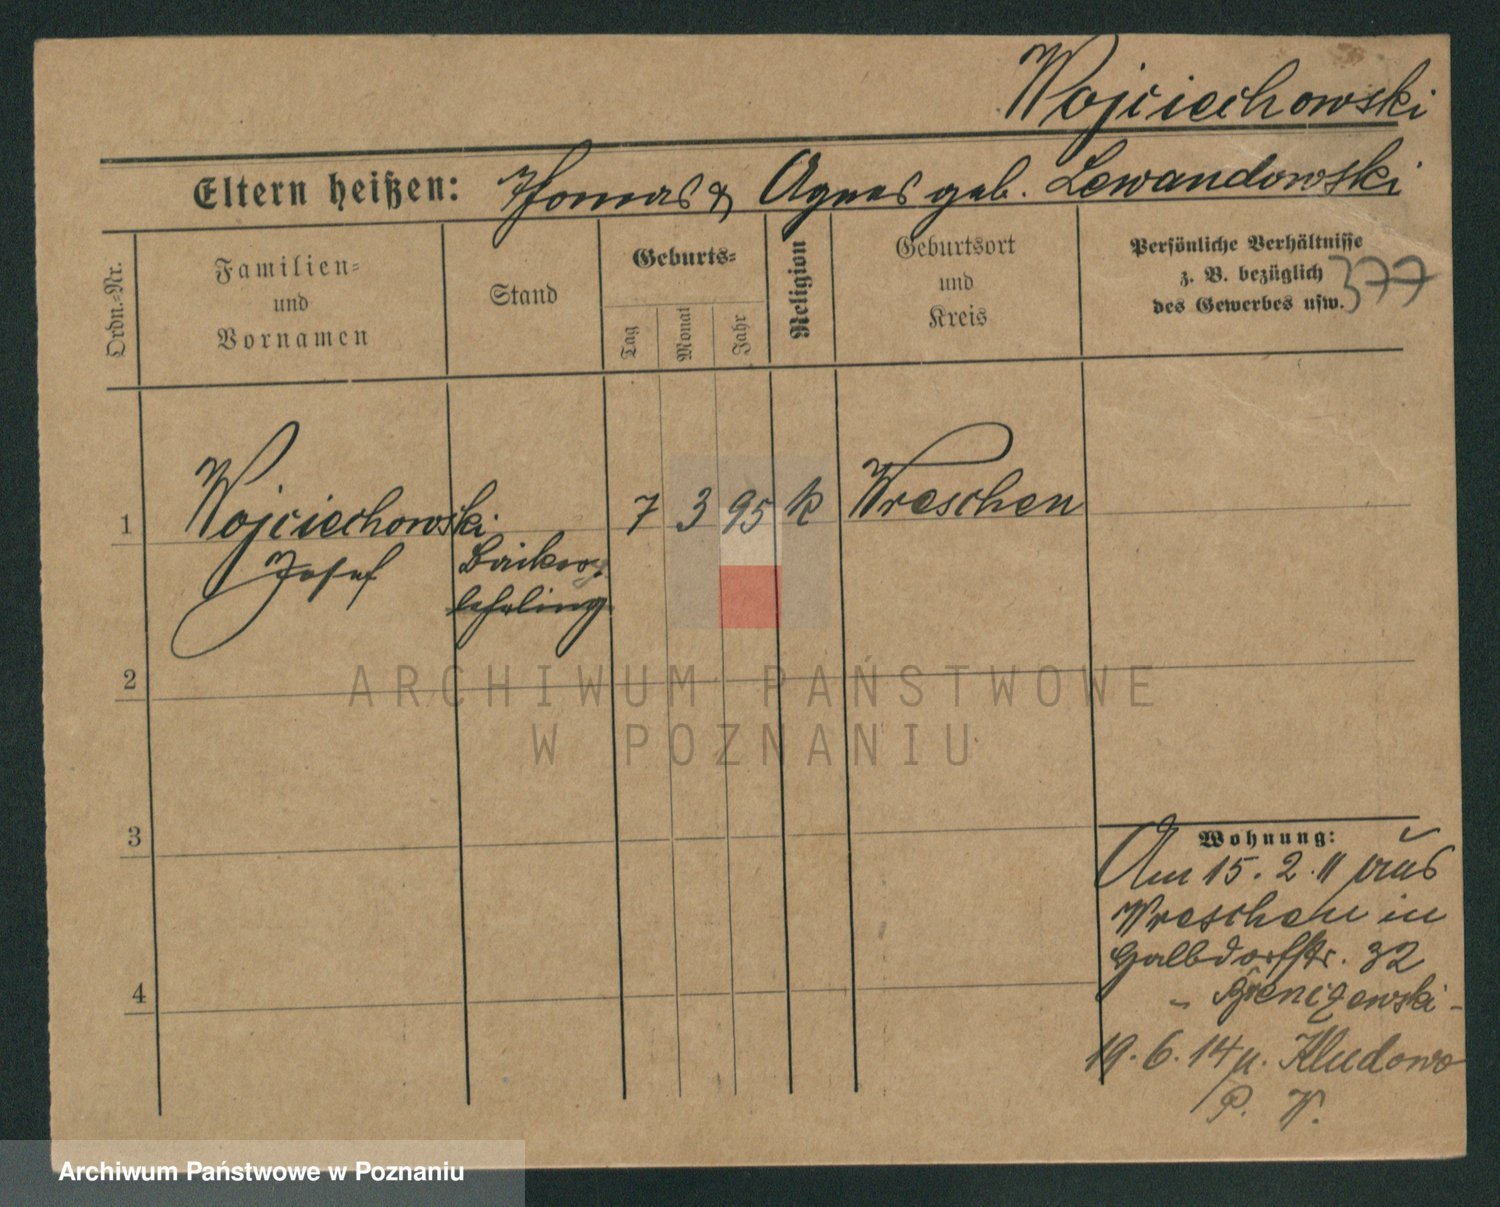 Wojciechowski
Eltern heißen: Thomas & Agnes geb. Lewandowski
Ordn.-Nr.
Familien-
und
Vornamen
Stand
Geburts-
Tag
Monat
Jahr
Religion
Geburtsort
und
Kreis
Persönliche Verhältnisse
z. B. bezüglich
des Gewerbes usw.
377
1 Wojciechowski 7 3 95 k Wreschen
Josef Bäcker
lehrling
2
3
4
Wohnung:
Am 15. 2. 11 aus
Wreschen in
Halbdorfstr. 32
19. 6. 14 n.
P. W.
ARCHIWUM PAŃSTWOWE
W POZNANIU
Archiwum Państwowe w Poznaniu